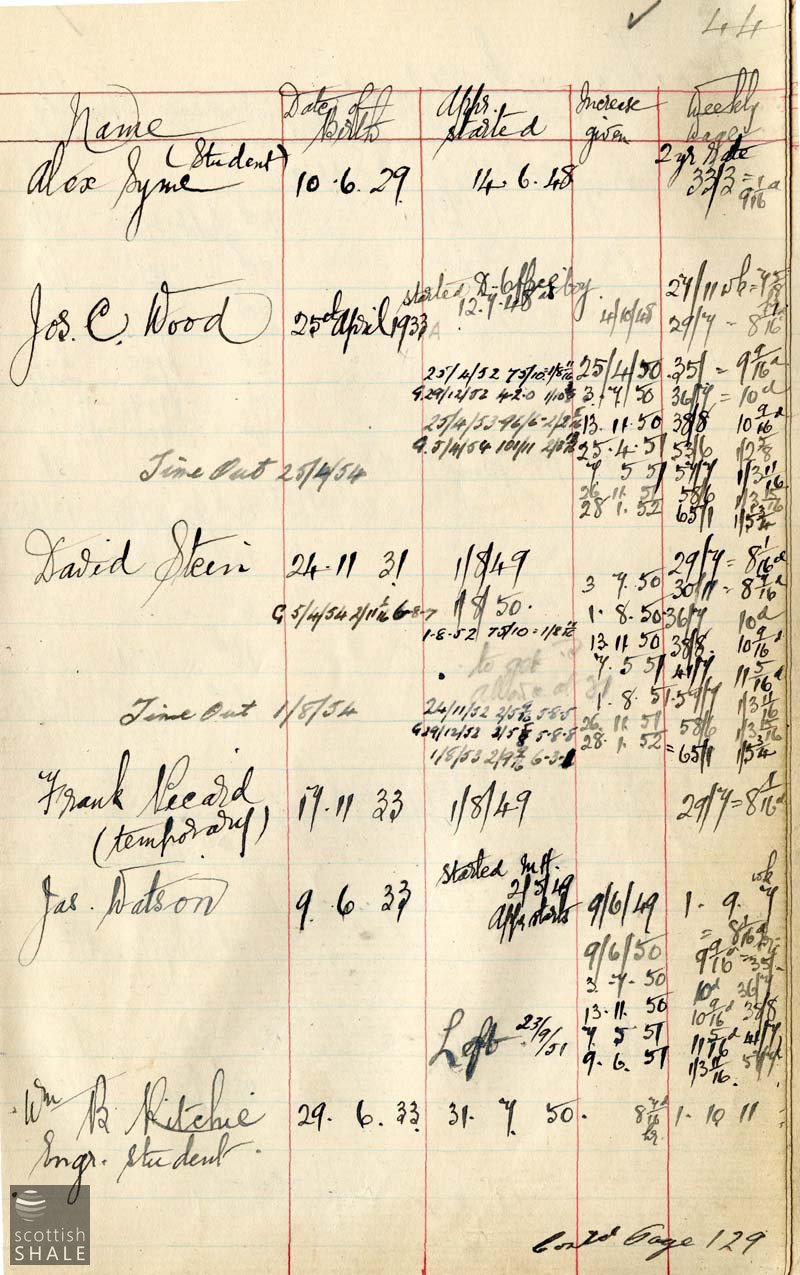 44
Name
Date of Birth
Appr. started
Increase given
Weekly Wages
Alex Syme (Student) 10.6.29 14.6.48 2 yr Rate 33/3 = 9 1/16d
started as Office boy 12.7.48 27/11 wk
Jos. C. Wood 25th April 1933 4/10/48 29/7 = 8 1/16
25/4/52 75/10 25/4/50 35/ = 9 9/16d
G.29/12/52 4-2-0 3.7/50 36/7 = 10d
25/4/53 13.11.50 38/8 10 9/16d
G.5/4/54 101/11 25.4.51 53/6 1/2 5/8
Time Out 25/4/54 7 5 51 57/7 1/3 11/16
26 11 51 58/6 1/3 15/16
28 1.52 65/1 1/5 3/4
David Stein 24.11 31 1/8/49 29/7 = 8 1/16d
3 7.50 30/11 = 8 7/16d
G 5/4/54 2/11 6-8-7 1/8/50. 1.8.50 36/7 10d
1-8-52 75/10 13.11 50 38/8. 10 9/16d
to get 7.5 51 41/7 11 5/16d
1.8.51 57/7 1/3 11/16
Time Out 1/8/54 24/11/52 5-8-5 26.11.51 58/6 1/3 15/16
G.29/12/52 5-8-8 28.1.52 = 65/1 1/5 3/4
1/8/53 6-3-1
Frank Riccard (temporary) 17.11 33 1/8/49 29/7 = 8 1/16d
started 2/5/49
Jas. Watson 9.6 33 Appr starts 9/6/49 1. 9. 7 wk
= 8 1/16d
9/6/50 9 9/16d = 35/-
3-7-50 10d 36/7
13.11.50 10 9/16d 38/8
Left 23/9/51 7 5 51 11 5/16d 41/7
9.6.51 1/3 11/16. 57/7
Wm B. Ritchie 29.6.33 31 7 50. 8 7/16d hr. 1-10 11
Engr. student.
Contd Page 129
scottish
SHALE